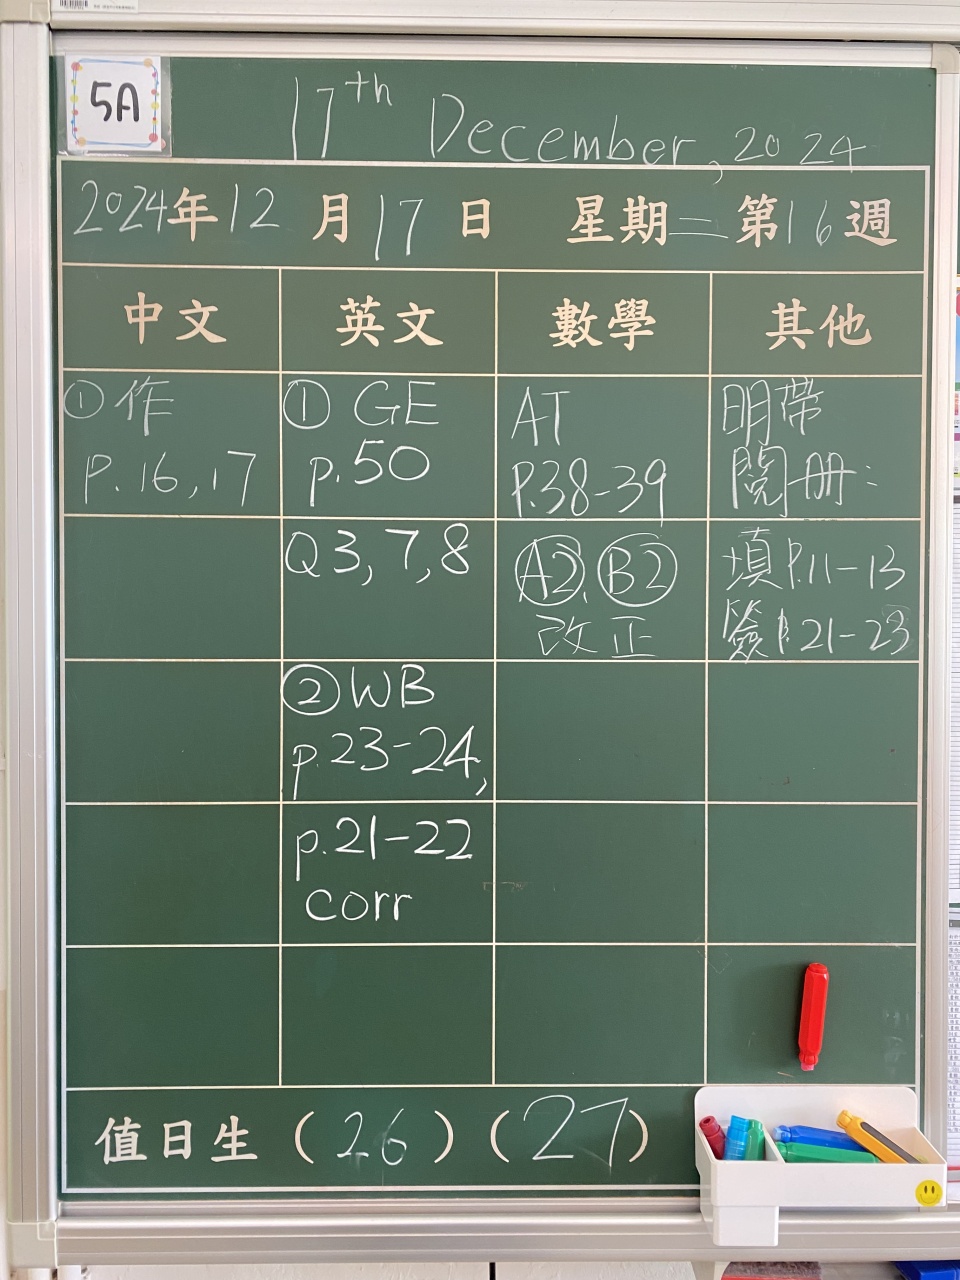 5A
17th December, 2024
2024年12月17日 星期二 第16週
中文 英文 數學 其他
① 作
P.16,17
① GE
p.50
Q3,7,8
② WB
p.23-24,
p.21-22
corr
AT
P.38-39
A2、B2
改正
明帶
閱冊:
填P.11-13
簽P.21-23
值日生 (26) (27)